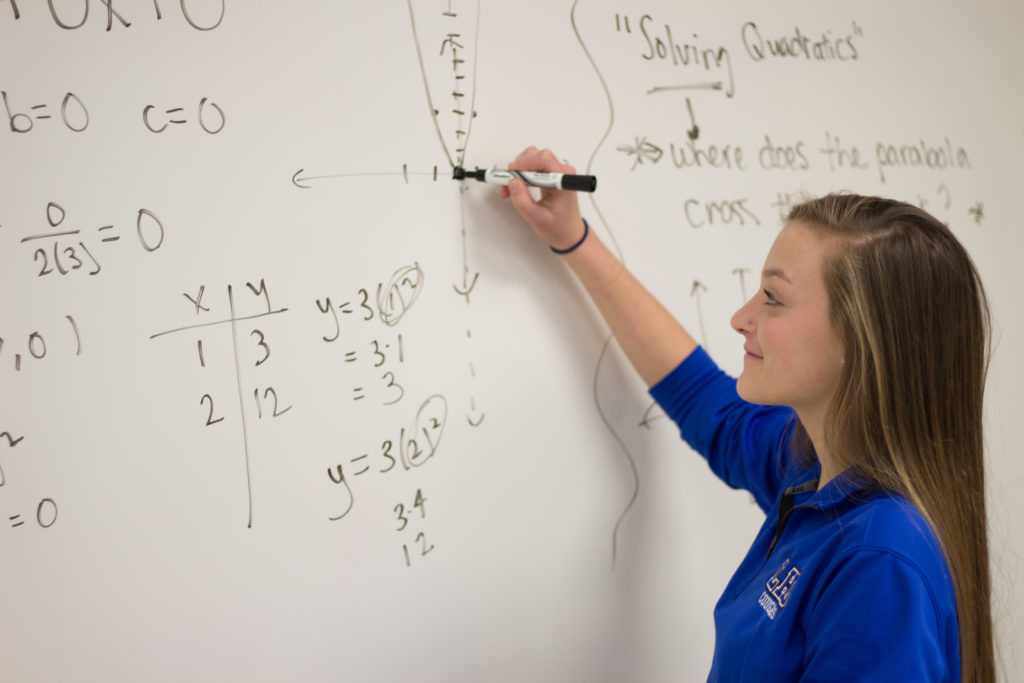 b=0 c=0
0
2(3) = 0
,0)
x y
1 3
2 12
= 0
y=3(1)²
= 3·1
= 3
y=3(2)²
3·4
12
"Solving Quadratics"
where does the parabola
cross
?
COUGARS